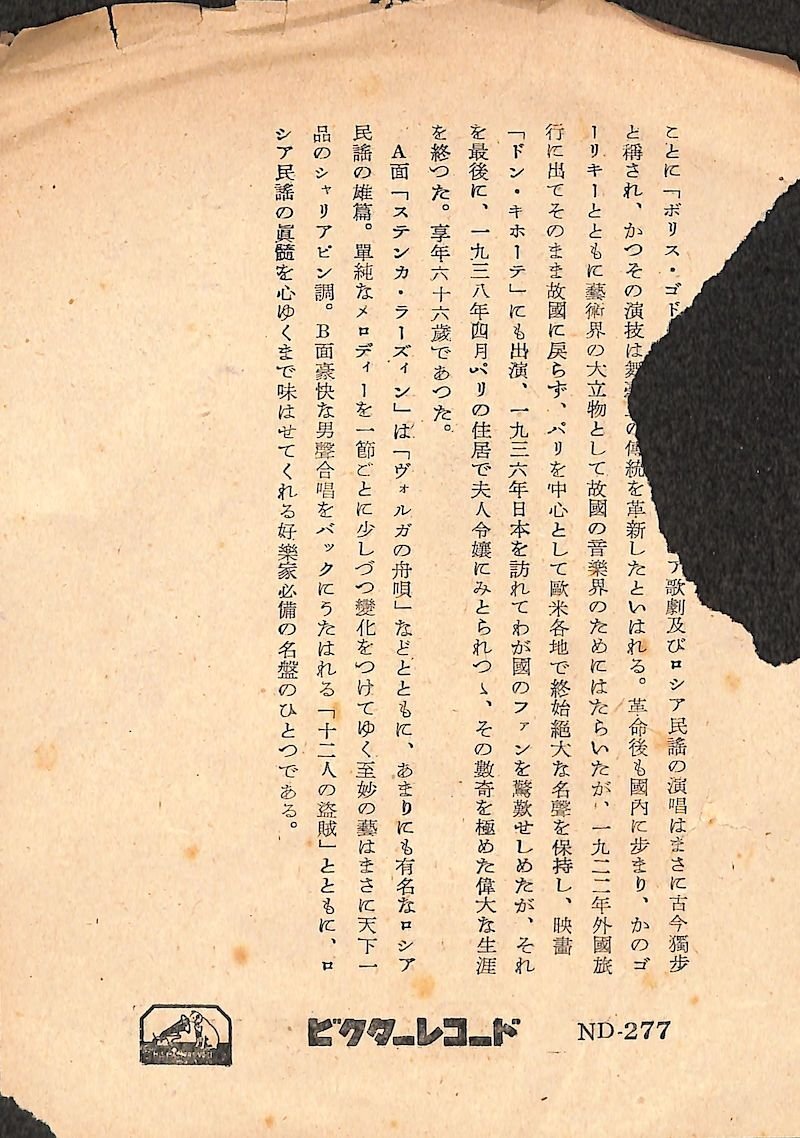 ことに「ボリス・ゴド
ア歌劇及びロシア民謠の演唱はまさに古今獨步
と稱され、かつその演技は舞
の傳統を革新したといはれる。革命後も國內に步まり、かのゴ
ーリキーとともに藝術界の大立物として故國の音樂界のためにはたらいたが、一九二二年外國旅
行に出てそのまま故國に戾らず、パリを中心として歐米各地で終始絕大な名聲を保持し、映畫
「ドン・キホーテ」にも出演、一九三六年日本を訪れてわが國のファンを驚歎せしめたが、それ
を最後に、一九三八年四月パリの住居で夫人令孃にみとられつゝ、その數奇を極めた偉大な生涯
を終つた。享年六十六歲であつた。
A面「ステンカ・ラーズィン」は「ヴォルガの舟唄」などとともに、あまりにも有名なロシア
民謠の雄篇。單純なメロディーを一節ごとに少しづつ變化をつけてゆく至妙の藝はまさに天下一
品のシャリアピン調。B面豪快な男聲合唱をバックにうたはれる「十二人の盜賊」とともに、ロ
シア民謠の眞髓を心ゆくまで味はせてくれる好樂家必備の名盤のひとつである。
ビクターレコード
ND-277